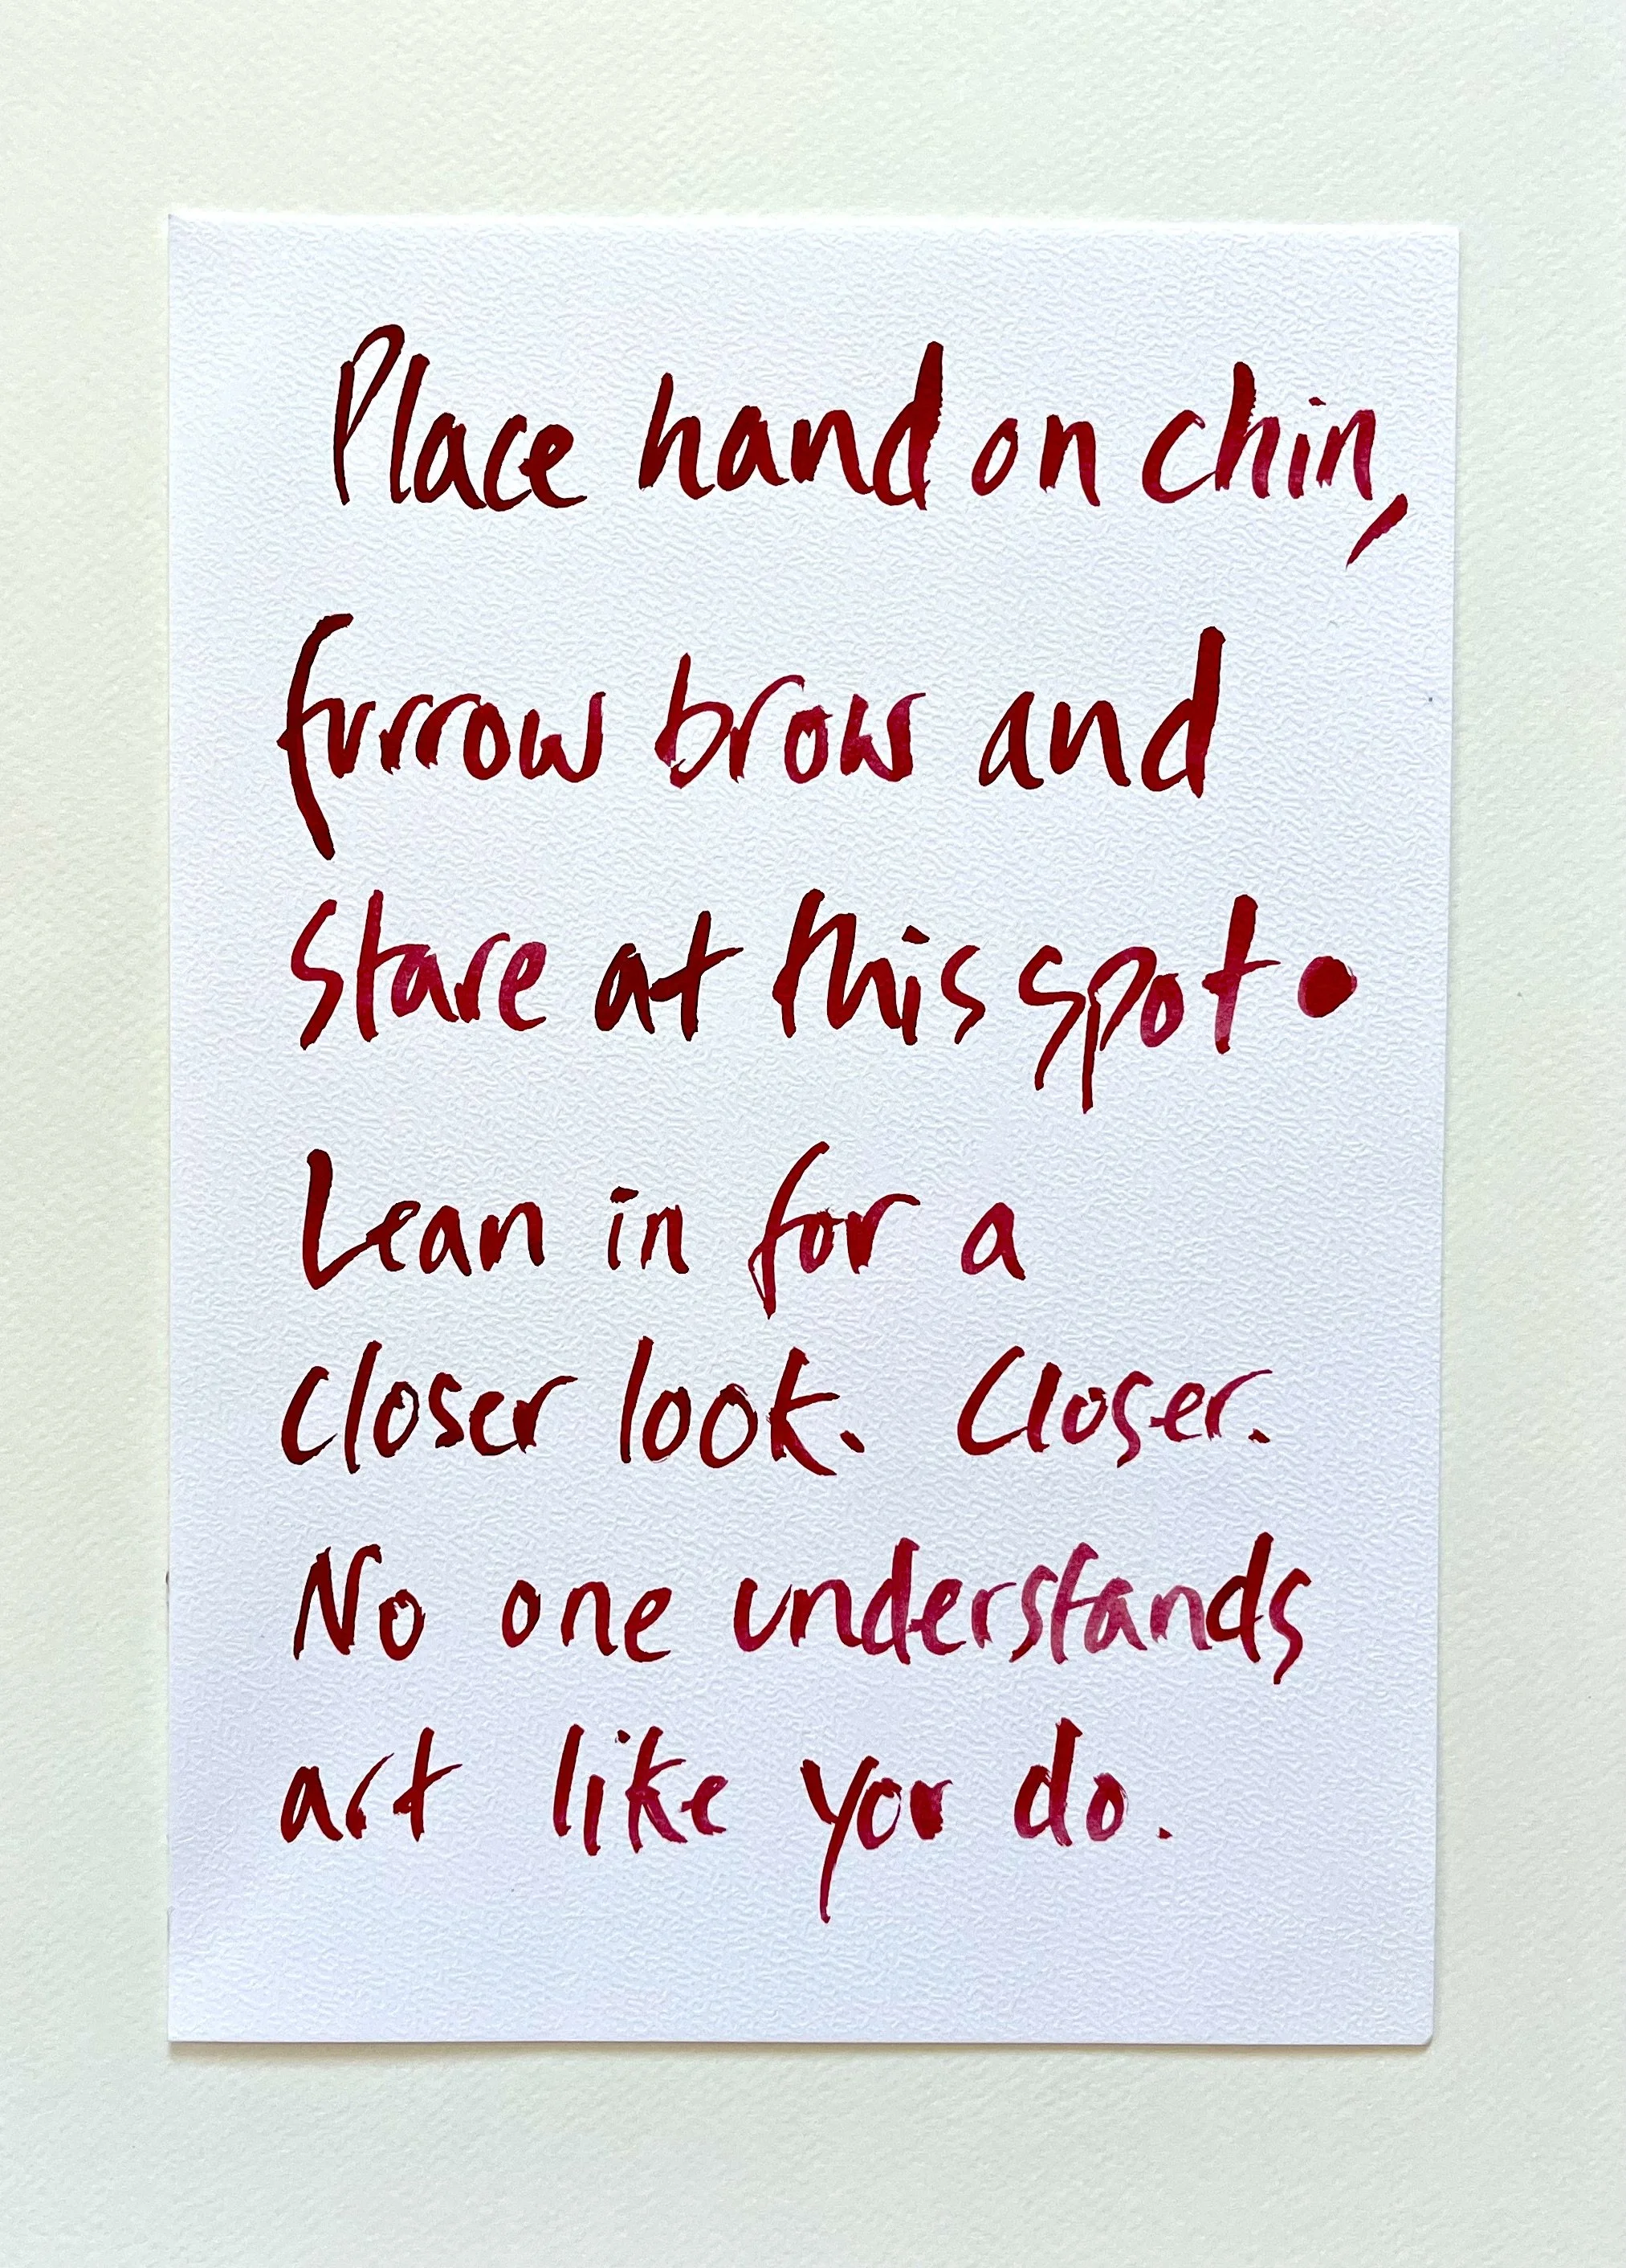 Place hand on chin,
furrow brow and
stare at this spot •
Lean in for a
closer look. Closer.
No one understands
art like you do.